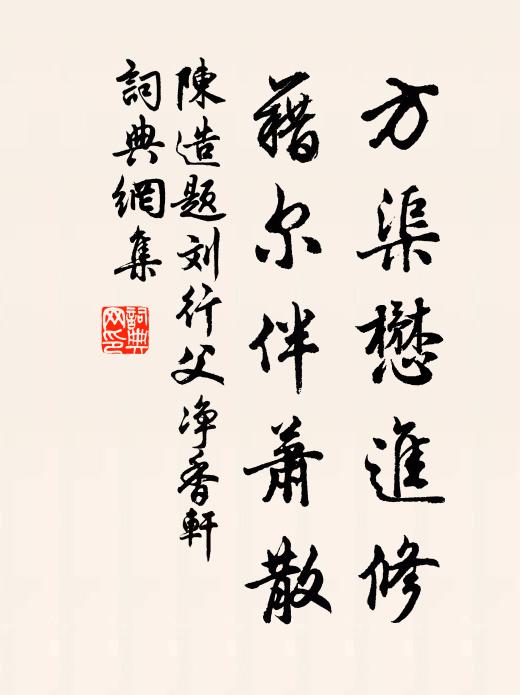 方渠懋進修
藉尔伴蕭散
陳造题刘行父净香軒
詞典網集
詞典网印